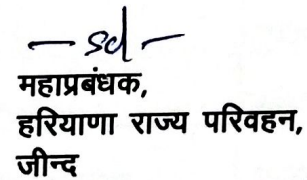 — sd —
महाप्रबंधक,
हरियाणा राज्य परिवहन,
जीन्द